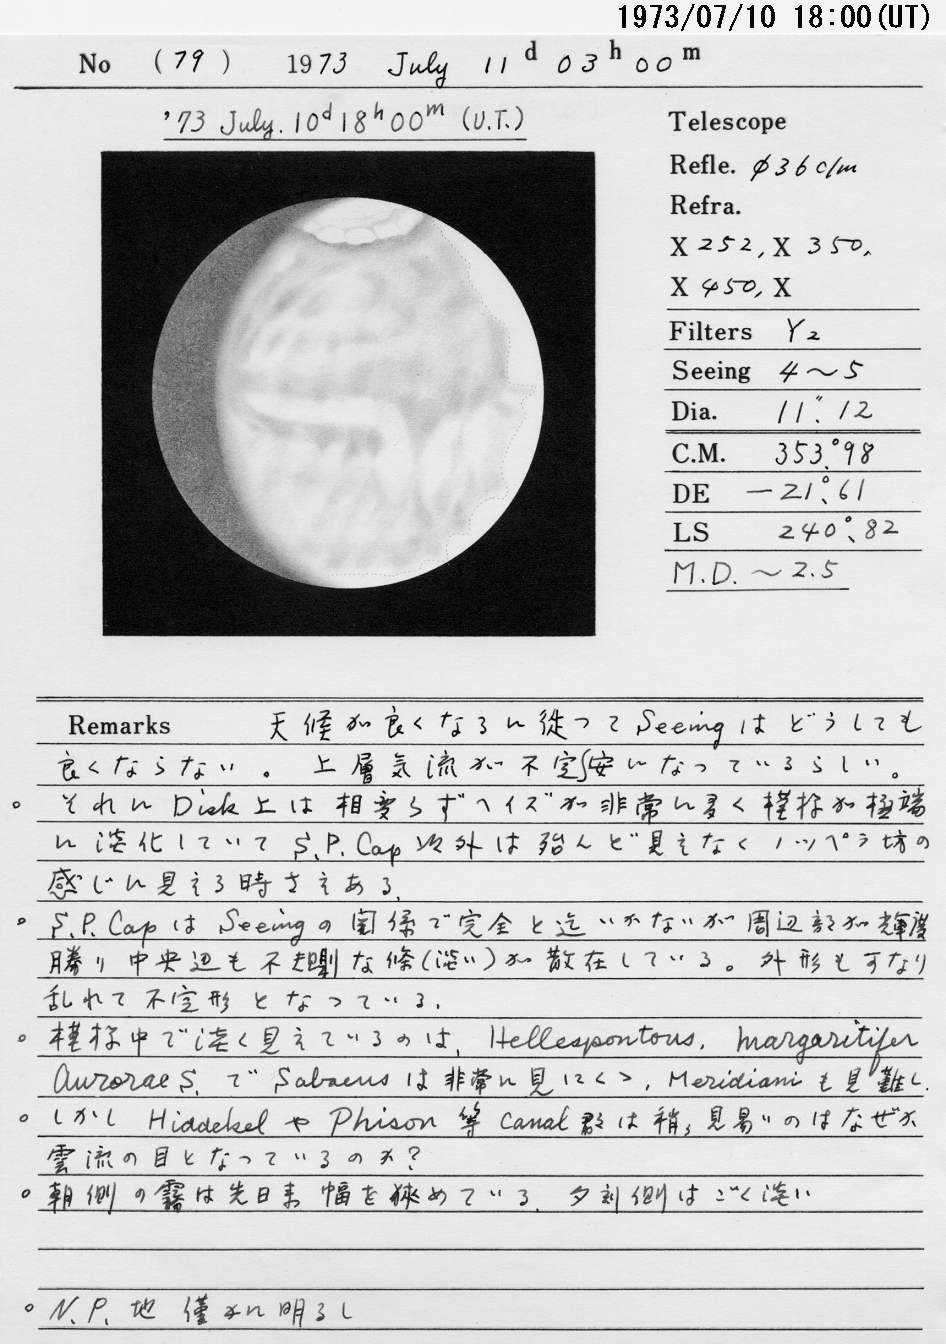 1973/07/10 18:00(UT)
No (79) 1973 July 11d 03h 00m
'73 July. 10d 18h 00m (U.T.)
Telescope
Refle. φ36c/m
Refra.
X 252, X 350,
X 450, X
Filters Y2
Seeing 4～5
Dia. 11".12
C.M. 353°.98
DE −21°.61
LS 240°.82
M.D. ～2.5
Remarks 天候が良くなるに従ってSeeingはどうしても
良くならない。上層気流が不安定になっているらしい。
。それにDisk上は相変らずヘイズが非常に多く模様が極端
に淡化していてS.P.Cap以外は殆んど見えなくノッペラ坊の
感じに見える時さえある。
。S.P.CapはSeeingの関係で完全と迄いかないが周辺部が輝度
勝り中央辺も不規則な條(淡い)が散在している。外形もすなり
乱れて不定形となっている。
。模様中で濃く見えているのは、Hellespontous, margaritifer
Aurorae S. で Sabaeusは非常に見にくく、Meridianiも見難し.
。しかし Hiddekel や Phison 等 canal 郡は稍々見易いのはなぜか
雲流の目となっているのか?
。朝側の霧は先日来幅を狭めている。夕刻側はごく淡い
。N.P.地 僅かに明るし